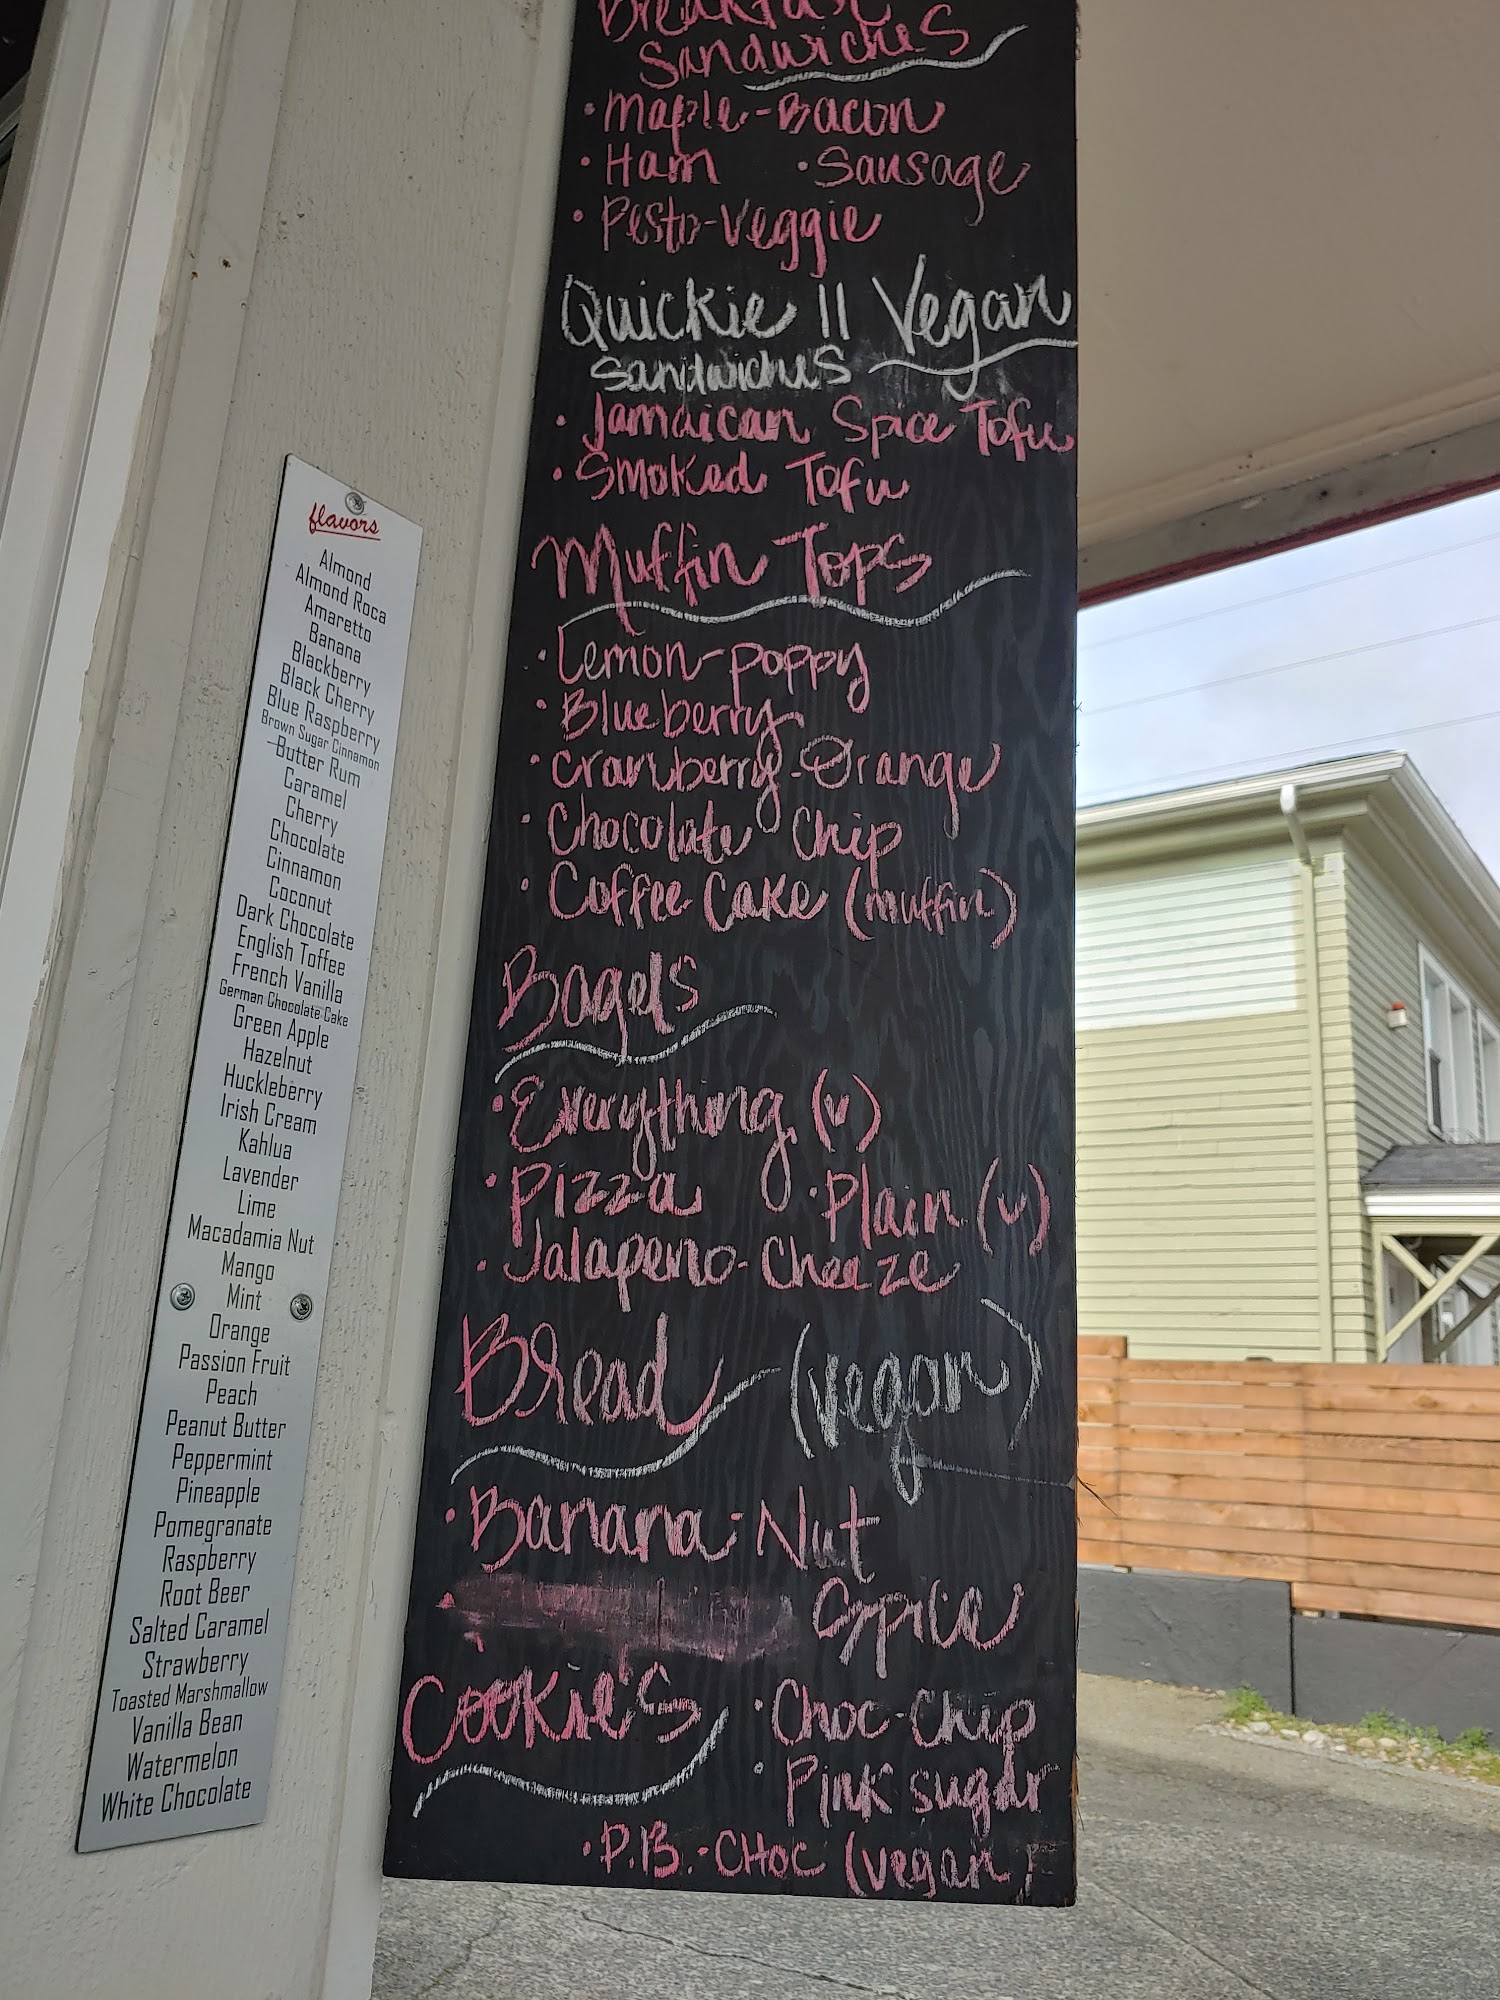 flavors
Almond
Almond Roca
Amaretto
Banana
Blackberry
Black Cherry
Blue Raspberry
Brown Sugar Cinnamon
Butter Rum
Caramel
Cherry
Chocolate
Cinnamon
Coconut
Dark Chocolate
English Toffee
French Vanilla
German Chocolate Cake
Green Apple
Hazelnut
Huckleberry
Irish Cream
Kahlua
Lavender
Lime
Macadamia Nut
Mango
Mint
Orange
Passion Fruit
Peach
Peanut Butter
Peppermint
Pineapple
Pomegranate
Raspberry
Root Beer
Salted Caramel
Strawberry
Toasted Marshmallow
Vanilla Bean
Watermelon
White Chocolate
Breakfast
Sandwiches
• Maple-Bacon
• Ham • Sausage
• Pesto-Veggie
Quickie || Vegan
Sandwiches
• Jamaican Spice Tofu
• Smoked Tofu
Muffin Tops
• Lemon-poppy
• Blueberry
• Cranberry-Orange
• Chocolate Chip
• Coffee Cake (muffin)
Bagels
• Everything (v)
• Pizza • Plain (v)
• Jalapeno-Cheeze
Bread (vegan)
• Banana-Nut
• Spice
Cookie's • Choc-Chip
• Pink sugar
• P.B.-CHOC (vegan)